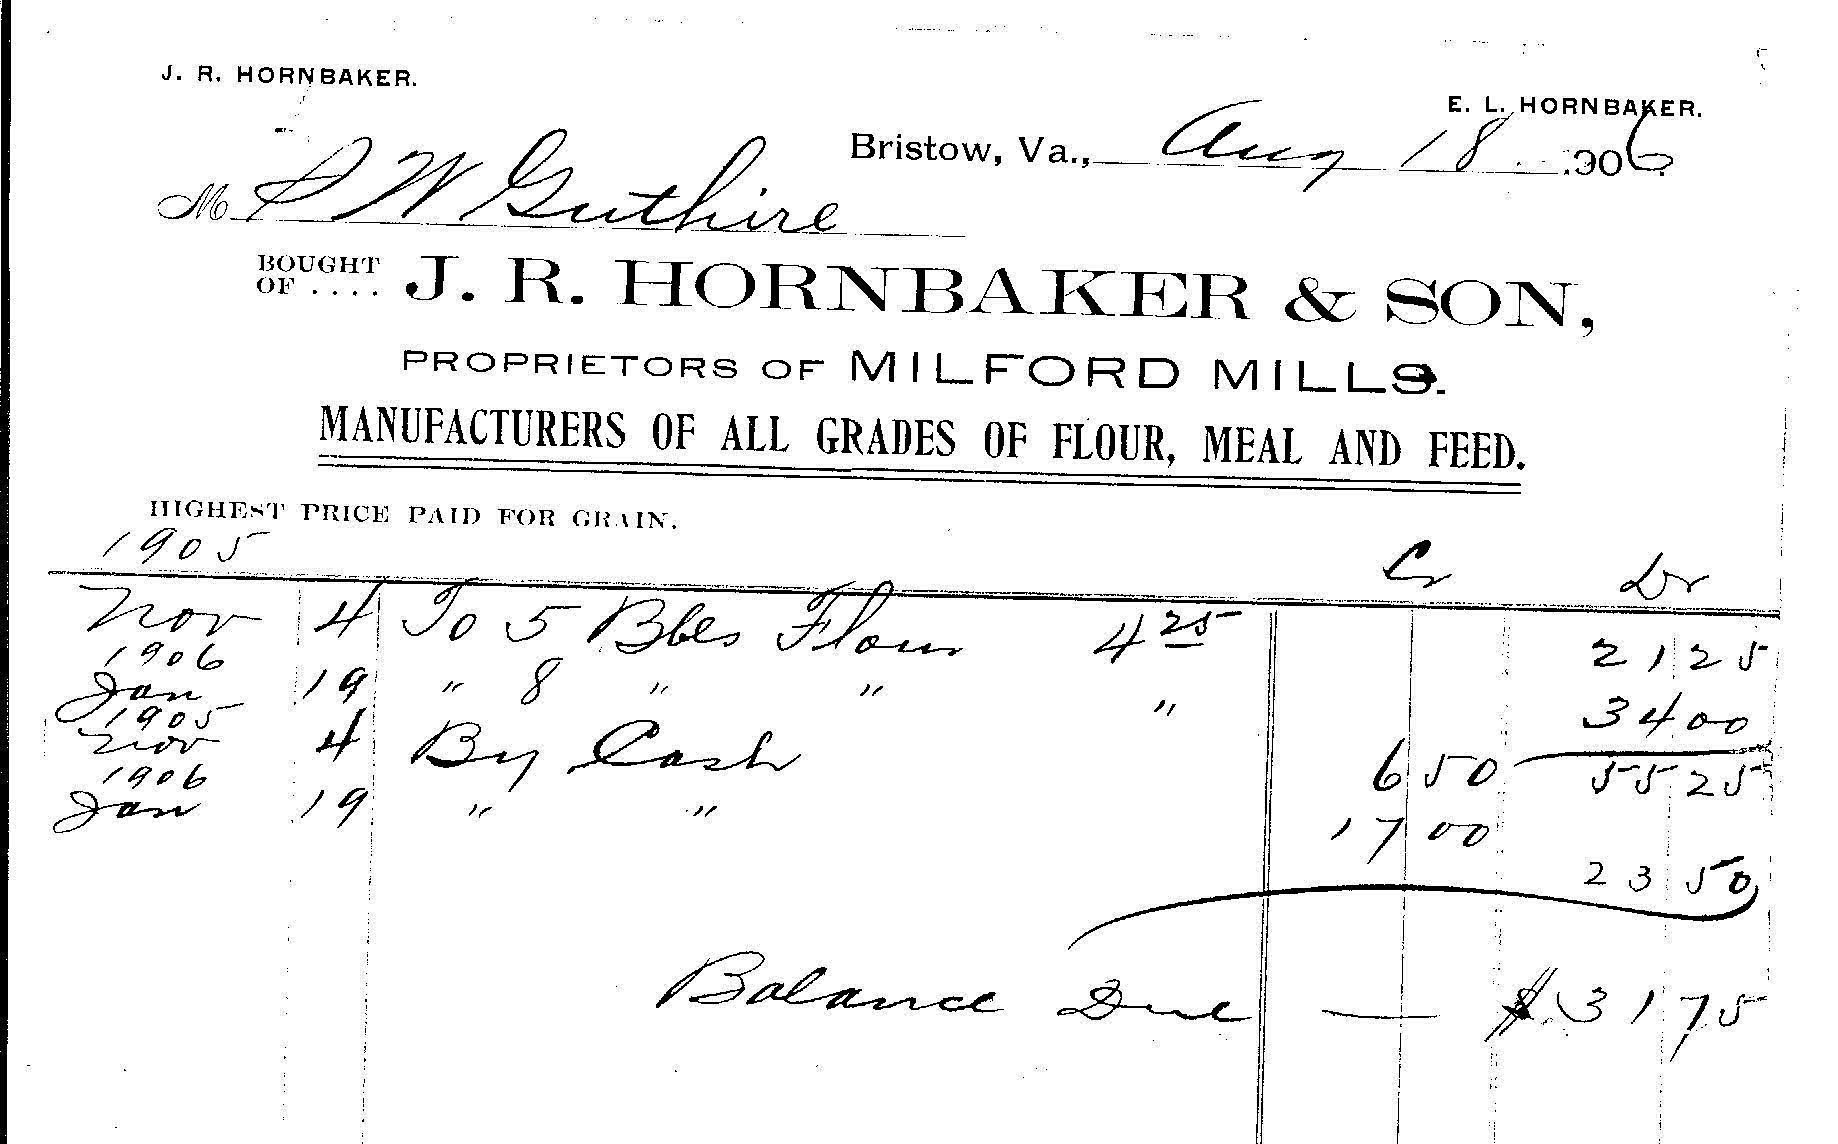 J. R. HORNBAKER.
E. L. HORNBAKER.
Bristow, Va., Aug 18 1906.
M S W Guthire
BOUGHT OF .... J. R. HORNBAKER & SON,
PROPRIETORS OF MILFORD MILLS.
MANUFACTURERS OF ALL GRADES OF FLOUR, MEAL AND FEED.
HIGHEST PRICE PAID FOR GRAIN.
1905 Cr Dr
Nov 4 To 5 Bbls Flour 4 25 21 25
1906
Jan 19 " 8 " " " 34 00
1905
Nov 4 By Cash 6 50 55 25
1906
Jan 19 " " 17 00
23 50
Balance Due — $ 31 75